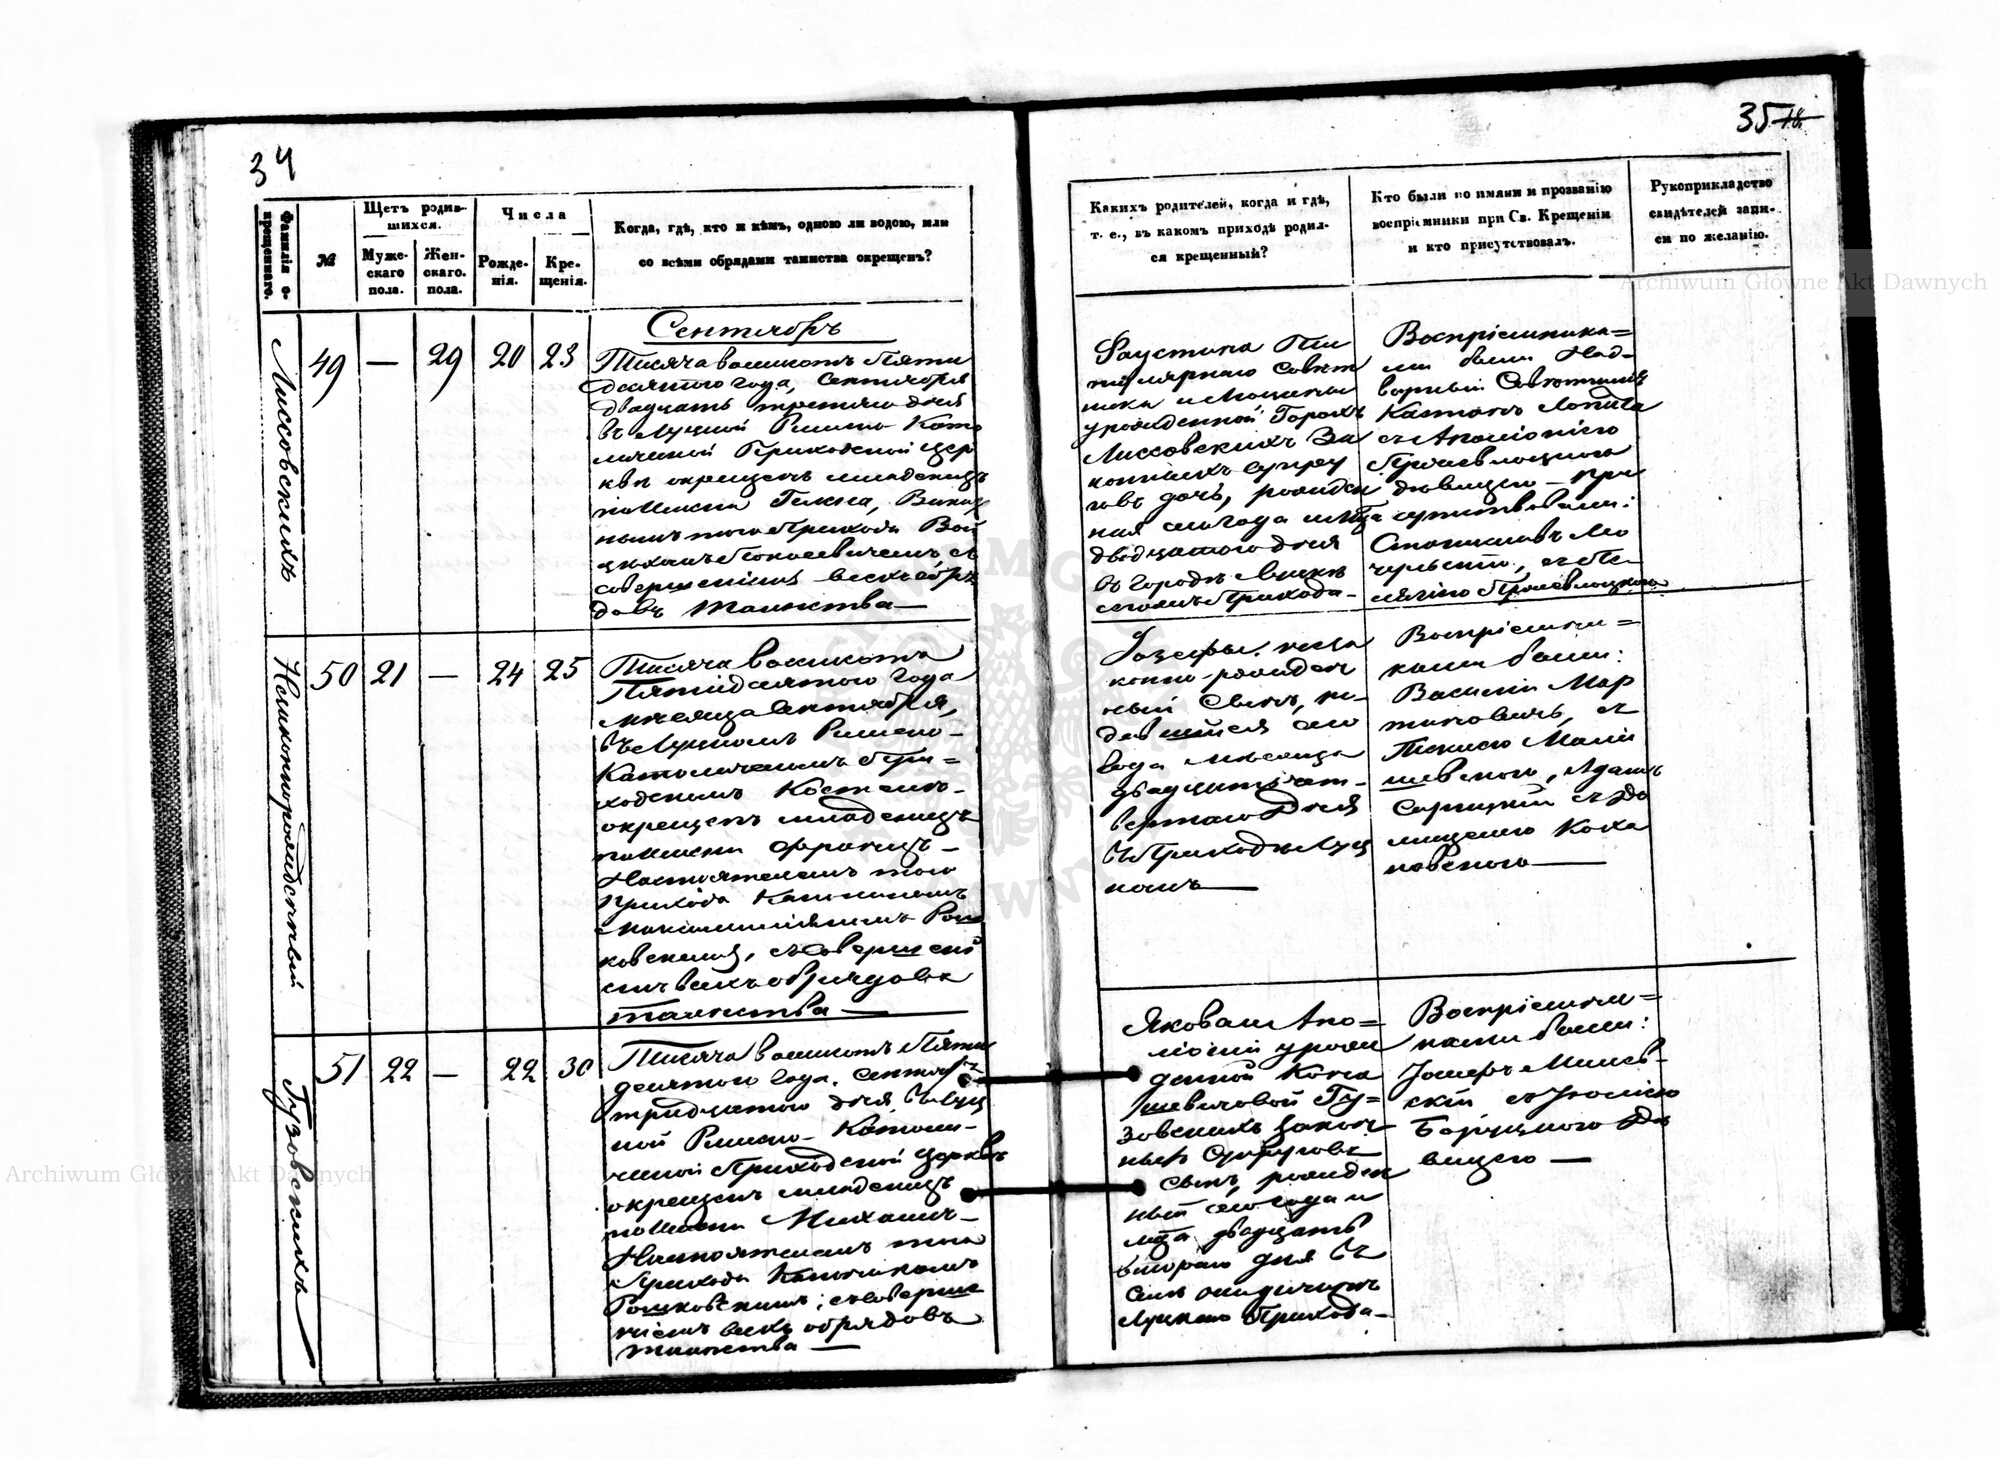 34
Фамилія о-
крещеннаго.
№
Щетъ родив-
шихся.
Муже-
скаго
пола.
Жен-
скаго.
пола.
Числа
Рожде-
нія.
Кре-
щенія.
Когда, гдѣ, кто и кѣмъ, одною ли водою, или
со всѣми обрядами таинства окрещенъ?
Лиссовскихъ
49 — 29 20 23
Сентябрь
Тысяча восемсотъ Пяти
десятого года, Сентября
двадцать третяго дня
въ Луцкой Римско Като
лической Приходской Цер
кви окрещенъ младенецъ
по имени Текла,
нымъ того Прихода Вой
съ
совершеніемъ всехъ обря
довъ таинства —
Незаконнорожденный
50 21 — 24 25
Тысяча восемсотъ
Пятидесятого года
месяца Сентября,
въ Луцкомъ Римско-
Католическомъ При=
ходскомъ Костеле-
окрещенъ младенецъ
по имени Францъ-
Настоятелемъ того
прихода Каноникомъ
Максимиліяномъ Рош
ковскимъ, съ соверше ні
емъ всехъ обрядовъ
таинства —
Гузовскихъ
51 22 — 22 30
Тысяча восемсотъ Пяти
десятого года. Сентября
тридцатого дня въ Луц
кой Римско- Католи-
ческой Приходской Церквѣ
окрещенъ младенецъ
по имени Михаилъ-
Настоятелемъ того
Прихода Каноникомъ
Рошковскимъ; съ соверше
ніемъ всехъ обрядовъ
таинства —
35 18.
Какихъ родителей, когда и гдѣ,
т. е., въ какомъ приходѣ родил-
ся крещенный?
Кто были по имяни и прозванію
воспріемники при Св. Крещеніи
и кто присутствовалъ.
Рукоприкладство
свидѣтелей запи-
си по желанію.
Фаустина Ти
тулярнаго Совет
ника и
урожденной
Лиссовскихъ За
конныхъ Супру
говъ дочь, рожден
ная сего года и мца
двадцатого дня
въ городе Луцке
сегожъ Прихода-
Воспріемника=
ми были Над-
ворный Советникъ
с Аполіоніею
девицею - при
сутствовали:
Станиславъ
Іозефы, неза
конно-рожден
ный Сынъ, ро-
дившийся сего
года месяца
двадцать чет-
вертаго дня
въ Приходе Луц
комъ —
Воспріемни=
ками были:
Василій Мар
тиновичъ, съ
шевскою, Адамъ
съ До
мицелею Коха
новскою —
Яковам Апо=
лоніи урож
денной
шевичовой Гу=
зовскихъ закон
ныхъ Супруговъ
сынъ, рожден
ный сего года и
мца двадцать
втораго дня въ
селе
Луцкого Прихода-
Воспріемни=
ками были:
Іосифъ
скій съ Юзефою
Де
вицею —
Archiwum Główne Akt Dawnych
Archiwum Główne Akt Dawnych